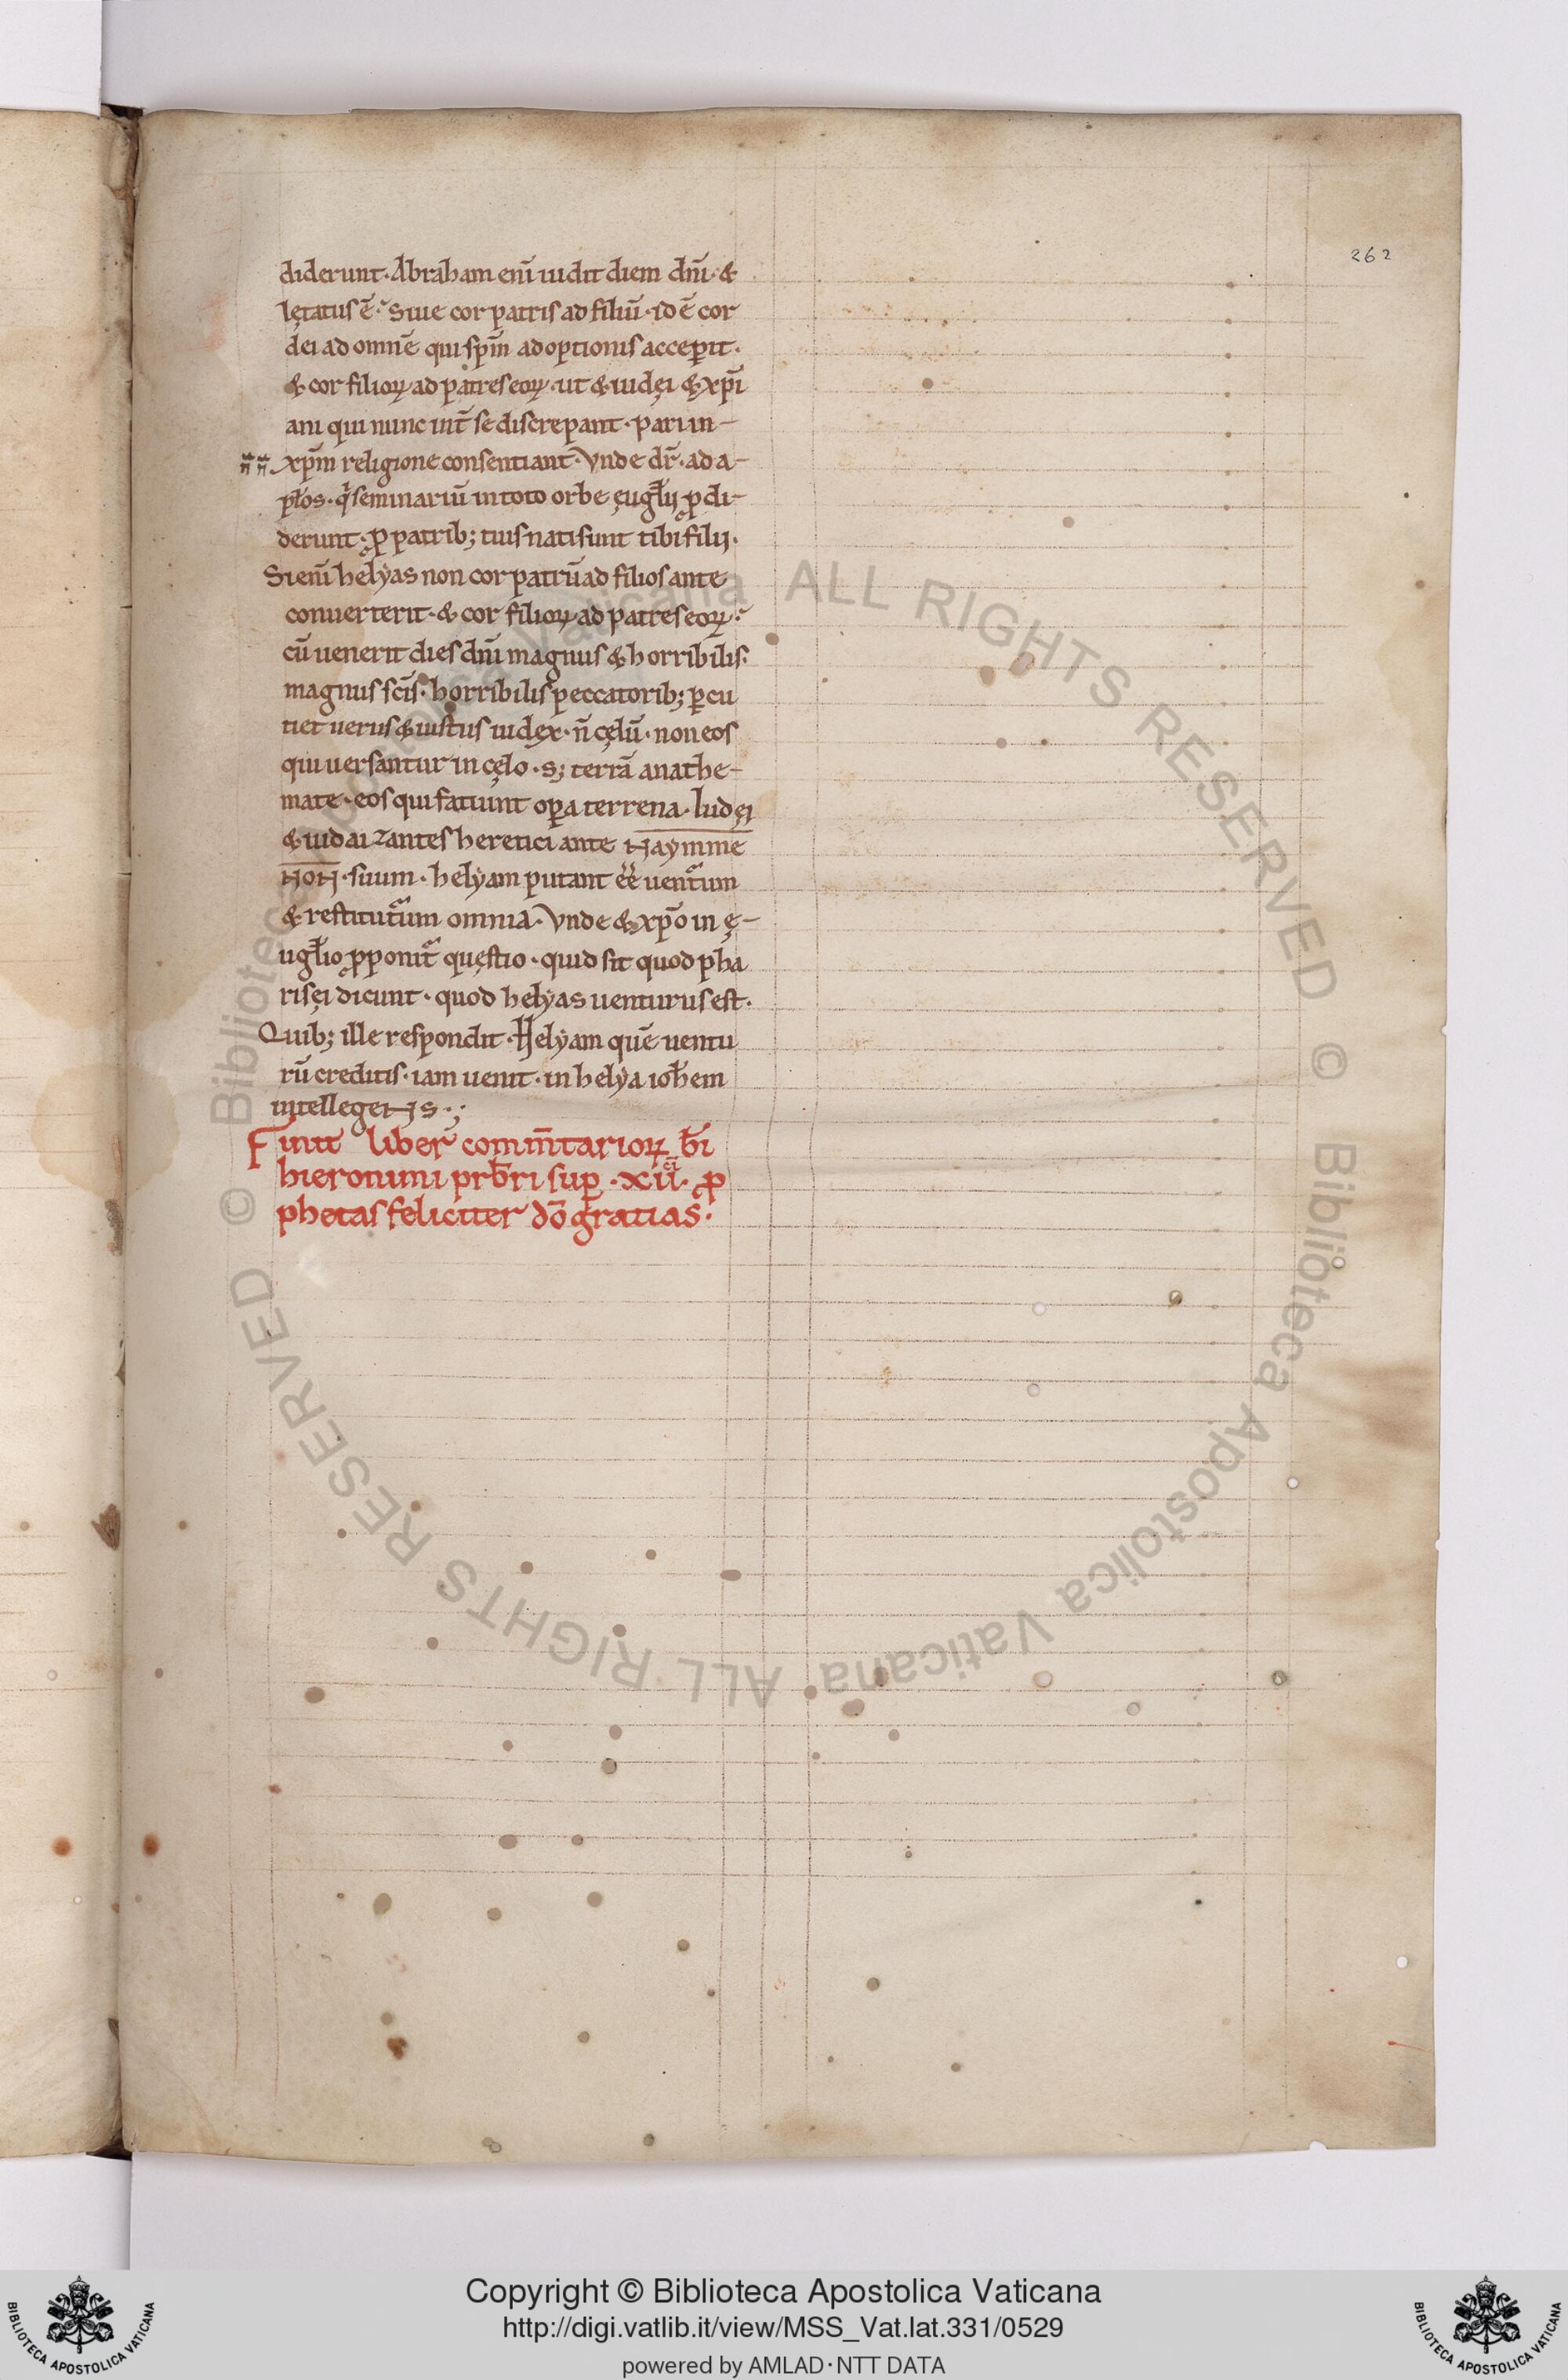 262
diderunt· Abraham eni̅ uidit diem dn̅i· &
lętatus e̅· Siue cor patris ad filiu̅· id e̅ cor
dei ad omne̅ qui sp̅m adoptionis acceꝑit·
& cor filioꝝ ad patres eoꝝ· ut & iudęi & xp̅i
ani qui nunc int̅ se discrepant· pari in-
xp̅m religione consentiant· Vnde dr̅· ad a-
pl̅os· q seminariu̅ in toto orbe ęugl̅ii ꝓdi-
derunt· ꝓ patrib; tuis nati sunt tibi filii·
Si eni̅ helyas non cor patru̅ ad filios ante
conuerterit· & cor filioꝝ ad patres eoꝝ·
cu̅ uenerit dies dn̅i magnus & horribilis·
magnus sc̅is· horribilis peccatorib; ꝑcu
tiet uerus & iustus iudex· n̅ cęlu̅· non eos
qui uersantur in cęlo· s; terra̅ anathe-
mate· eos qui fatiunt oꝑa terrena· Iudęi
& iudaizantes heretici ante Haymme
non· suum· helyam putant ee̅ uentum
& restitutum omnia· Vnde & xp̅o in ę-
ugl̅io ꝓponit questio· quid sit quod pha
risęi dicunt· quod helyas uenturus est·
Quib; ille respondit· Helyam que̅ uentu
ru̅ creditis· iam uenit· in helya ioh̅em
intellegens·
Finit liber com̅mtarioꝝ b̅i
hieronimi prb̅ri suꝑ ·xii· ꝓ
phetas feliciter do̅ gratias·
© Biblioteca Apostolica Vaticana ALL RIGHTS RESERVED
© Biblioteca Apostolica Vaticana ALL RIGHTS RESERVED
BIBLIOTECA APOSTOLICA VATICANA
Copyright © Biblioteca Apostolica Vaticana
http://digi.vatlib.it/view/MSS_Vat.lat.331/0529
powered by AMLAD·NTT DATA
BIBLIOTECA APOSTOLICA VATICANA